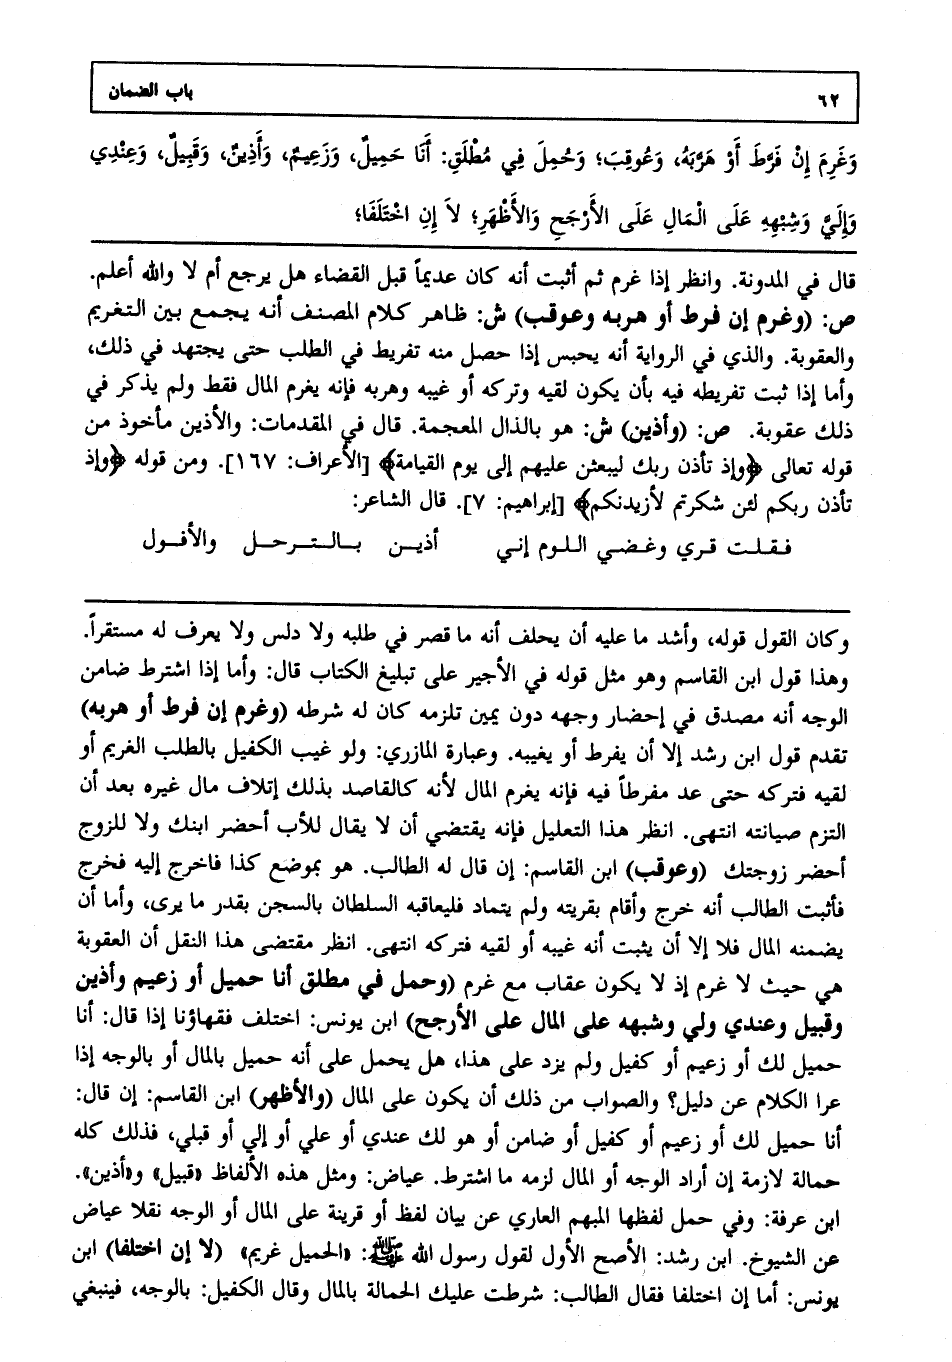 ٦٢ باب الضمان
وَغَرِمَ إِنْ فَرَّطَ أَوْ هَرَّبَهُ، وَعُوقِبَ؛ وَحُمِلَ فِي مُطْلَقِ: أَنَا حَمِيلٌ، وَزَعِيمٌ، وَأَذِينٌ، وَقَبِيلٌ، وَعِنْدِي
وَإِلَيَّ وَشِبْهِهِ عَلَى الْمَالِ عَلَى الأَرْجَحِ وَالأَظْهَرِ؛ لاَ إِنِ اخْتَلَفَا؛
قال في المدونة. وانظر إذا غرم ثم أثبت أنه كان عديماً قبل القضاء هل يرجع أم لا والله أعلم.
ص: (وغرم إن فرط أو هربه وعوقب) ش: ظاهر كلام المصنف أنه يجمع بين التغريم
والعقوبة. والذي في الرواية أنه يحبس إذا حصل منه تفريط في الطلب حتى يجتهد في ذلك،
وأما إذا ثبت تفريطه فيه بأن يكون لقيه وتركه أو غيبه وهربه فإنه يغرم المال فقط ولم يذكر في
ذلك عقوبة. ص: (وأذين) ش: هو بالذال المعجمة. قال في المقدمات: والأذين مأخوذ من
قوله تعالى ﴿وإذ تأذن ربك ليبعثن عليهم إلى يوم القيامة﴾ [الأعراف: ١٦٧]. ومن قوله ﴿وإذ
تأذن ربكم لئن شكرتم لأزيدنكم﴾ [إبراهيم: ٧]. قال الشاعر:
فقلت قري وغضي اللوم إني أذين بالترحل والأفول
وكان القول قوله، وأشد ما عليه أن يحلف أنه ما قصر في طلبه ولا دلس ولا يعرف له مستقراً.
وهذا قول ابن القاسم وهو مثل قوله في الأجير على تبليغ الكتاب قال: وأما إذا اشترط ضامن
الوجه أنه مصدق في إحضار وجهه دون يمين تلزمه كان له شرطه (وغرم إن فرط أو هربه)
تقدم قول ابن رشد إلا أن يفرط أو يغيبه. وعبارة المازري: ولو غيب الكفيل بالطلب الغريم أو
لقيه فتركه حتى عد مفرطاً فيه فإنه يغرم المال لأنه كالقاصد بذلك إتلاف مال غيره بعد أن
التزم صيانته انتهى. انظر هذا التعليل فإنه يقتضي أن لا يقال للأب أحضر ابنك ولا للزوج
أحضر زوجتك (وعوقب) ابن القاسم: إن قال له الطالب. هو بموضع كذا فاخرج إليه فخرج
فأثبت الطالب أنه خرج وأقام بقريته ولم يتماد فليعاقبه السلطان بالسجن بقدر ما يرى، وأما أن
يضمنه المال فلا إلا أن يثبت أنه غيبه أو لقيه فتركه انتهى. انظر مقتضى هذا النقل أن العقوبة
هي حيث لا غرم إذ لا يكون عقاب مع غرم (وحمل في مطلق أنا حميل أو زعيم وأذين
وقبيل وعندي ولي وشبهه على المال على الأرجح) ابن يونس: اختلف فقهاؤنا إذا قال: أنا
حميل لك أو زعيم أو كفيل ولم يزد على هذا، هل يحمل على أنه حميل بالمال أو بالوجه إذا
عرا الكلام عن دليل؟ والصواب من ذلك أن يكون على المال (والأظهر) ابن القاسم: إن قال:
أنا حميل لك أو زعيم أو كفيل أو ضامن أو هو لك عندي أو علي أو إلي أو قبلي، فذلك كله
حمالة لازمة إن أراد الوجه أو المال لزمه ما اشترط. عياض: ومثل هذه الألفاظ «قبيل» و«أذين».
ابن عرفة: وفي حمل لفظها المبهم العاري عن بيان لفظ أو قرينة على المال أو الوجه نقلا عياض
عن الشيوخ. ابن رشد: الأصح الأول لقول رسول الله ﷺ: «الحميل غريم» (لا إن اختلفا) ابن
يونس: أما إن اختلفا فقال الطالب: شرطت عليك الحمالة بالمال وقال الكفيل: بالوجه، فينبغي